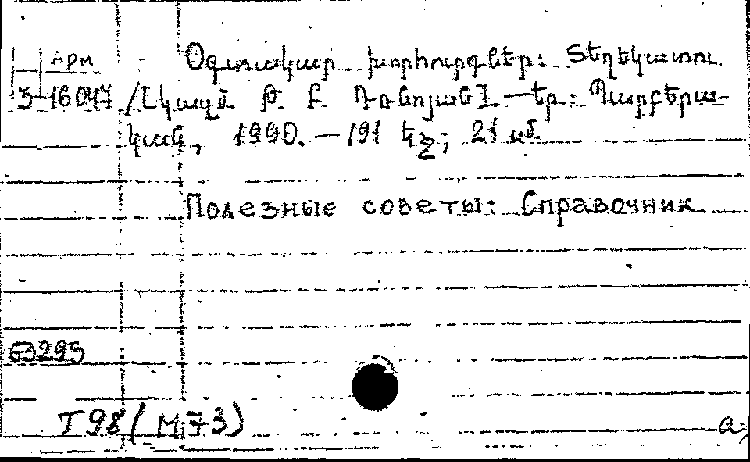 Арм
Օգտակար խորհուրդներ: Տեղեկատու
3-16047 /[Կազմ. Թ. Բ. Դոնոյան]. — Եր.: Պարբերա-
կան, 1990. — 191 էջ; 21 սմ.
Полезные советы: Справочник
63295
Т98(М73)
а